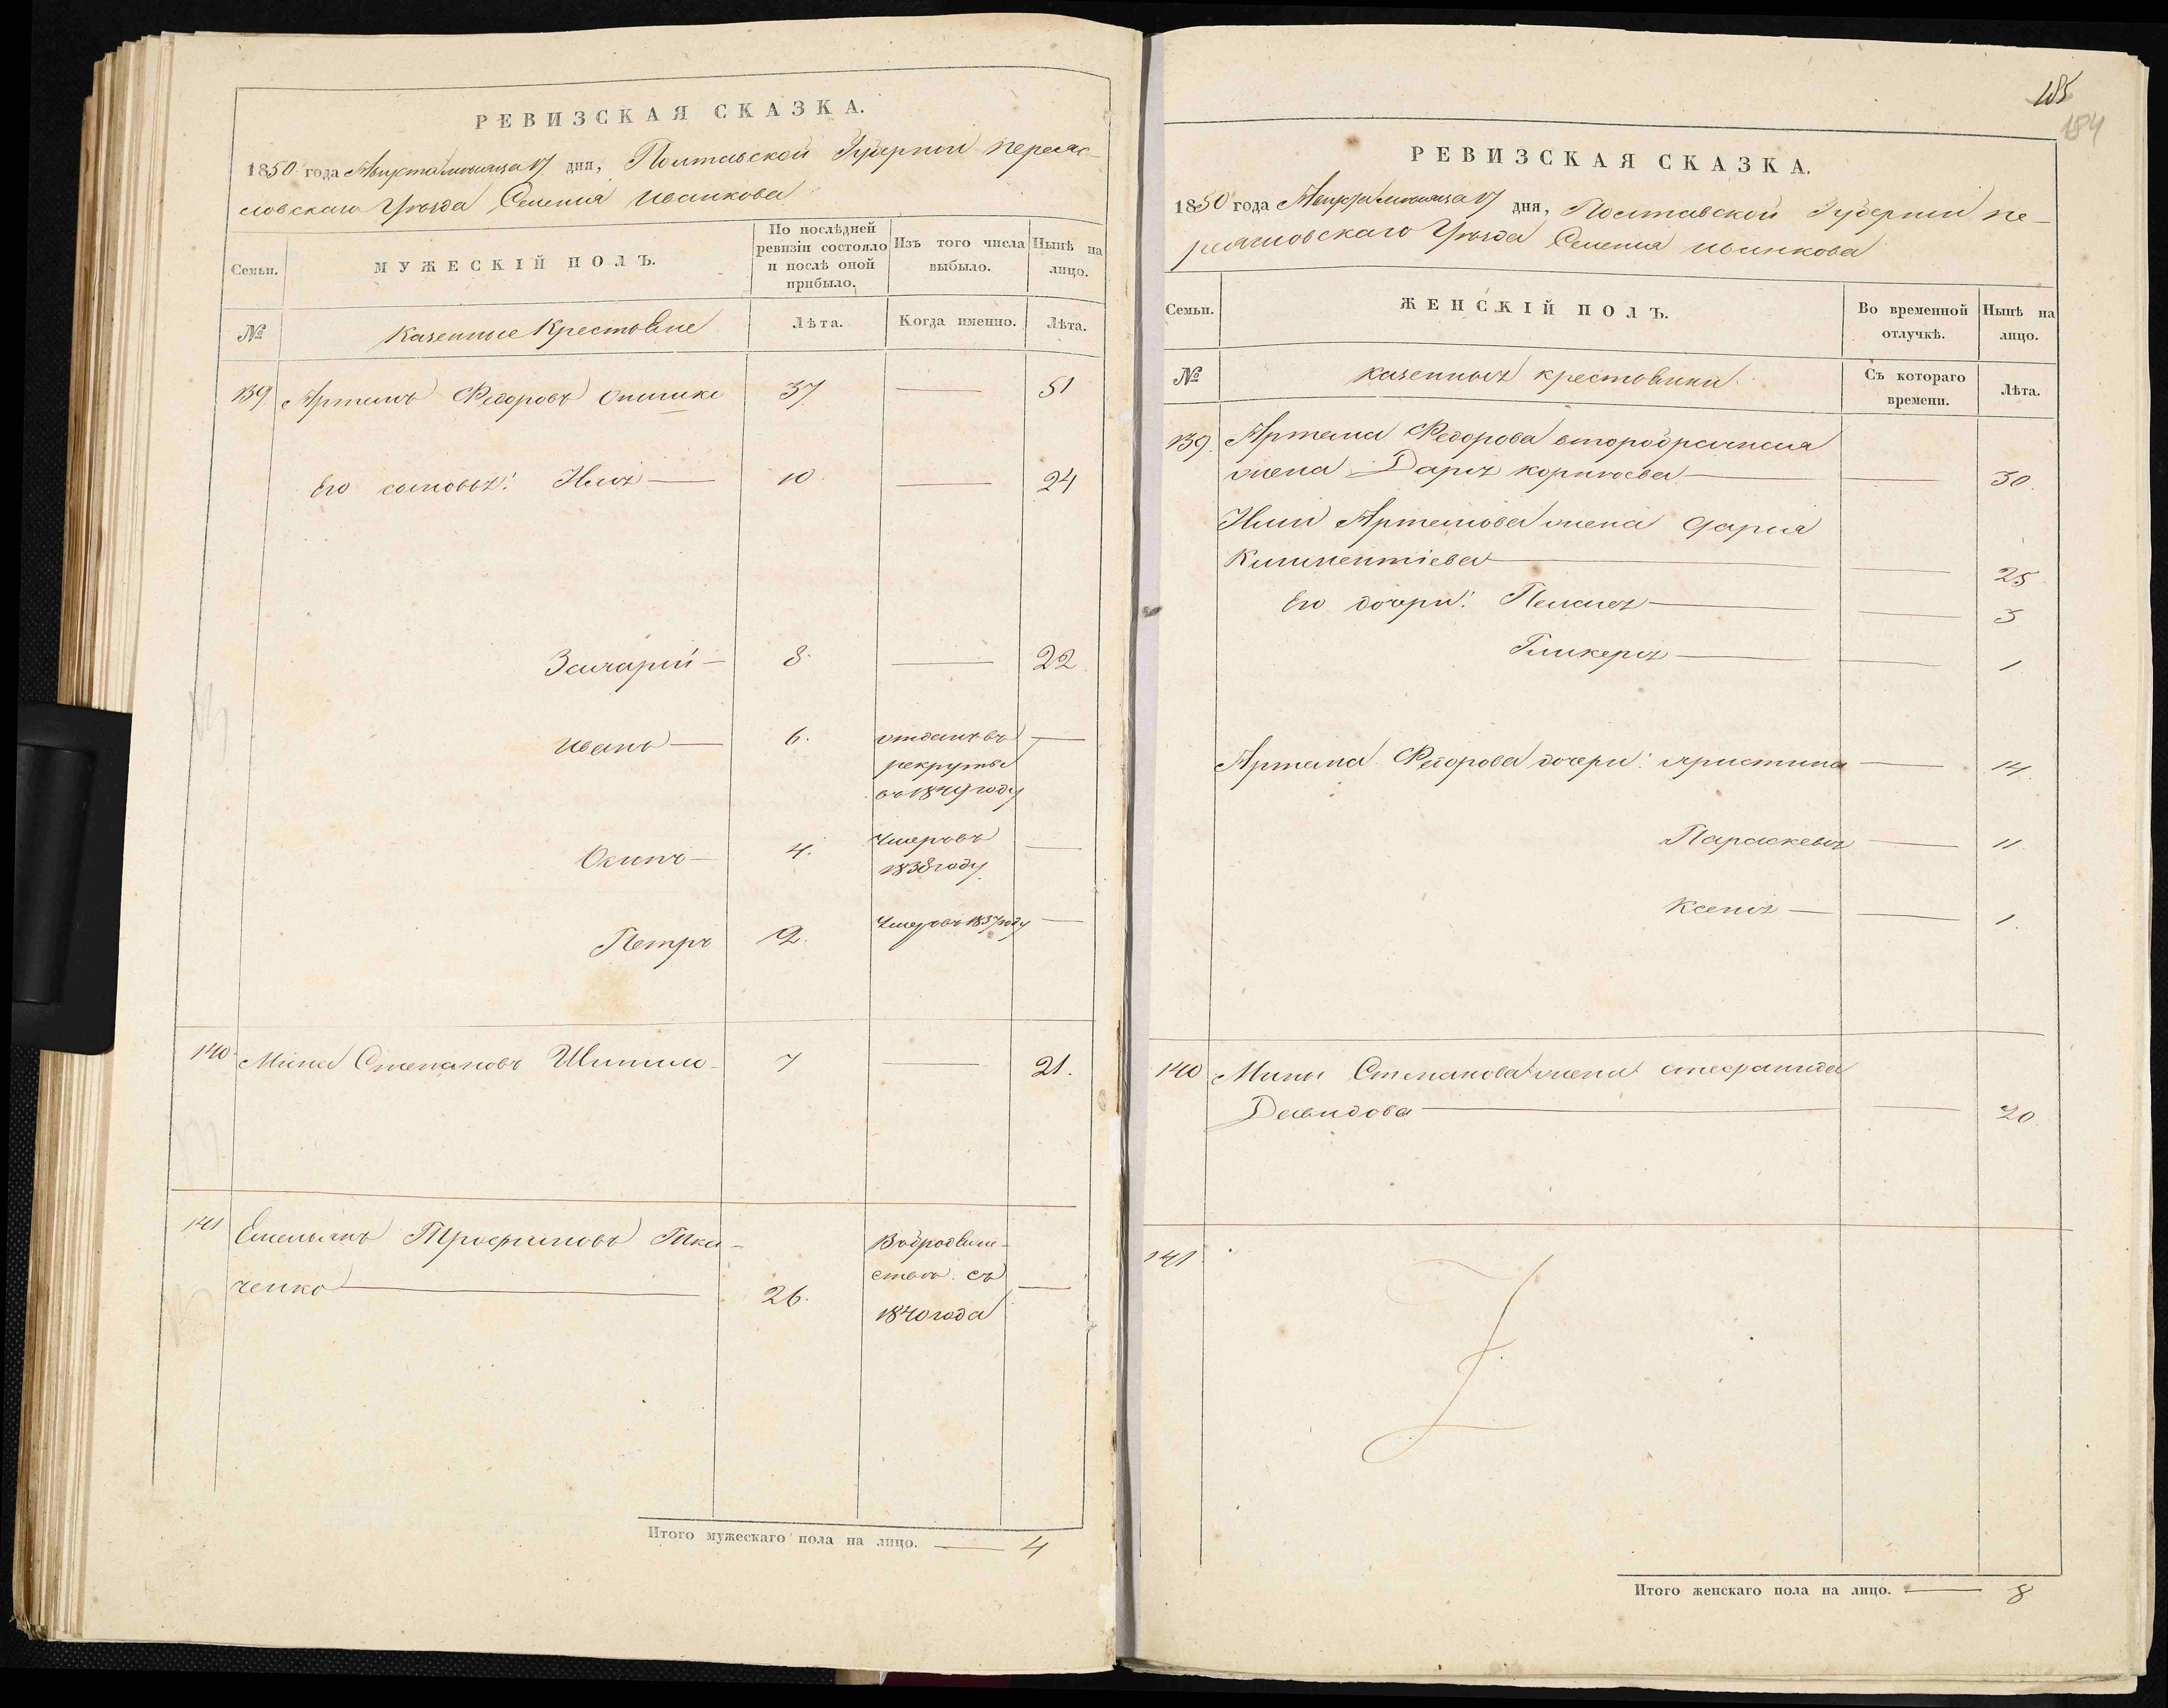 РЕВИЗСКАЯ СКАЗКА.
1850 года Августа месяца 17 дня, Полтавской Губернии Переяс-
ловскаго Уѣзда Селения Иванкова
Семьи.
МУЖЕСКІЙ ПОЛЪ.
По послѣдней
ревизіи состояло
и послѣ оной
прибыло.
Изъ того числа
выбыло.
Нынѣ на
лицо.
№
Казенные Крестьяне
Лѣта.
Когда именно.
Лѣта.
139 Артемъ Федоровъ 37 — 51
Его сыновья: Илья — 10. — 24
Захарій — 8. — 22
Иванъ — 6. отданъ въ —
рекруты
въ 1849 году
Осипъ — 4. Умеръ въ —
1838 году
Петръ 2. Умеръ въ 1837 году —
140. Мина Степановъ Шпило 7 — 21.
141 Емельянъ Трофимовъ Тка-
ченко — 26. —
В бродяже-
ствѣ съ
1840 года
Итого мужескаго пола на лицо. — 4
185
184
РЕВИЗСКАЯ СКАЗКА.
1850 года Августа месяца 17 дня, Полтавской Губернии Пе-
реясловскаго Уѣзда Селения Иванкова
Семьи.
ЖЕНСКІЙ ПОЛЪ.
Во временной
отлучкѣ.
Нынѣ на
лицо.
№
казенныя крестьянки
Съ котораго
времени.
Лѣта.
139. Артема Федорова второбрачная
жена Дарья Корнѣева — — 30.
Ильи Артемова жена Дарья
Климентіева — — 25
Его дочери: Пелагея — — 3
Гликерья — — 1
Артема Федорова дочери: Христина — 14
Параскевья — 11
Ксенья — — 1.
140 Мины Степанова жена Степанида
Давидова — — 20
141
Итого женскаго пола на лицо. — 8